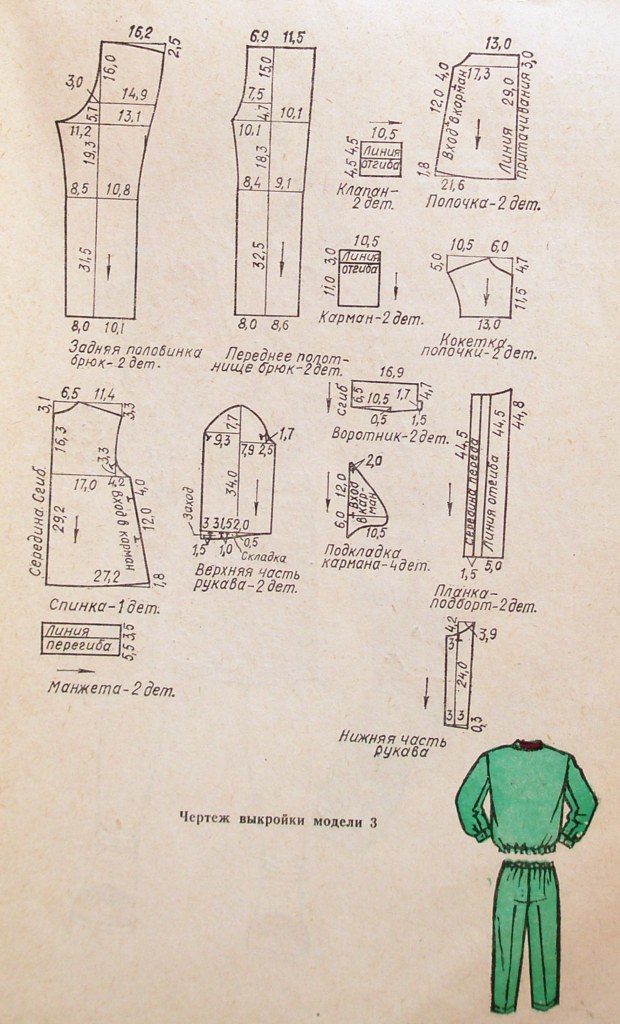 16,2
2,5
3,0
16,0
14,9
5,7
13,1
11,2
19,3
8,5 10,8
31,5
8,0 10,1
Задняя половинка
брюк-2 дет.
6,9 11,5
15,0
7,5
4,7
10,1
10,1
18,3
8,4 9,1
32,5
8,0 8,6
Переднее полот-
нище брюк-2 дет.
10,5
4,5 4,5
Линия
отгиба
Клапан-
2 дет.
13,0
3,0
4,0
17,3
12,0
Вход в карман
29,0
Линия
притачивания
1,8
21,6
Полочка-2 дет.
10,5
3,0
Линия
отгиба
11,0
Карман-2 дет.
10,5 6,0
5,0
4,7
11,5
13,0
Кокетка
полочки-2 дет.
6,5 11,4
3,1
3,3
16,3
3,3
17,0
4,2
4,0
Середина. Сгиб
29,2
Вход в карман
12,0
27,2
1,8
Спинка-1 дет.
7,7
9,3
1,7
7,9 2,5
34,0
Заход
3 31,5 2,0
0,5
1,5 1,0
Складка
Верхняя часть
рукава-2 дет.
16,9
Сгиб
6,5
10,5
1,7
4,7
0,5
1,5
Воротник-2 дет.
2,0
12,0
Вход
в кар-
ман
6,0
10,5
Подкладка
кармана-4 дет.
44,5
Середина переда
44,5
Линия отгиба
44,8
1,5
5,0
Планка-
подборт-2 дет.
Линия
перегиба
3,5
5,5
Манжета-2 дет.
4,2
3,9
3
24,0
3 3
0,3
Нижняя часть
рукава
Чертеж выкройки модели 3